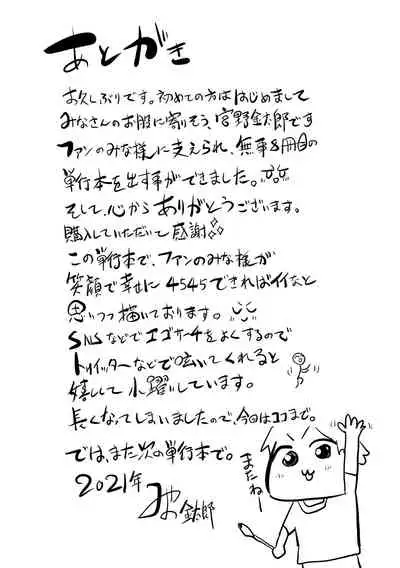 あとがき
お久しぶりです。初めての方ははじめまして
みなさんのお股に寄りそう、宮野金太郎です
ファンのみな様に支えられ、無事8冊目の
単行本を出す事ができました。
そして、心からありがとうございます。
購入していただいて感謝
この単行本で、ファンのみな様が
笑顔で幸せに4545できればイイなと
思いつつ描いております。
SNSなどでエゴサーチをよくするので
トゥイッターなどで呟いてくれると
嬉しくて小躍りしています。
長くなってしまいましたので、今日はココまで。
では、また次の単行本で。
2021年
金太郎
またねー